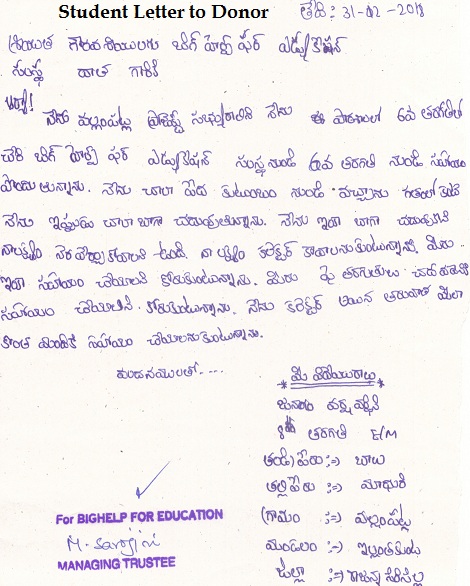 Student Letter to Donor
తేది: 31-02-2018
శ్రీయుత గౌరవనీయులగు బిగ్ హెల్ప్ ఫర్ ఎడ్యుకేషన్
సంస్థ దాత గారికి
నేను వల్లంపట్ల ప్రాజెక్ట్ సభ్యురాలిని నేను ఈ పాఠశాలలో 6వ తరగతిలో
చేరి బిగ్ హెల్ప్ ఫర్ ఎడ్యుకేషన్ సంస్థ నుండి 6వ తరగతి నుండి సహాయం
పొందుతున్నాను. నేను చాలా పేద కుటుంబం నుండి వచ్చాను గతంలో కంటే
నేను ఇప్పుడు చాలా బాగా చదువుతున్నాను. నేను ఇంకా బాగా చదువుకుని
నా లక్ష్యం నెరవేర్చుకోవాలని ఉంది. నా లక్ష్యం కలెక్టర్ కావాలనుకుంటున్నాను. మీరు
ఇంకా సహాయం చేయాలని కోరుకుంటున్నాను. మీరు పై తరగతులు చదవడానికి
సహాయం చేయాలని కోరుకుంటున్నాను. నేను కలెక్టర్ అయిన తరువాత మీలా
కొంత మందికి సహాయం చేయాలనుకుంటున్నాను.
వందనములతో....
* మీ విధేయురాలు *
8th తరగతి E/M
తండ్రి పేరు :=> బాబు
తల్లి పేరు :=> మాధురి
గ్రామం :=> వల్లంపట్ల
మండలం :=> ఇల్లంతకుంట
జిల్లా :=> రాజన్న సిరిసిల్ల
For BIGHELP FOR EDUCATION
M. Sarojini
MANAGING TRUSTEE